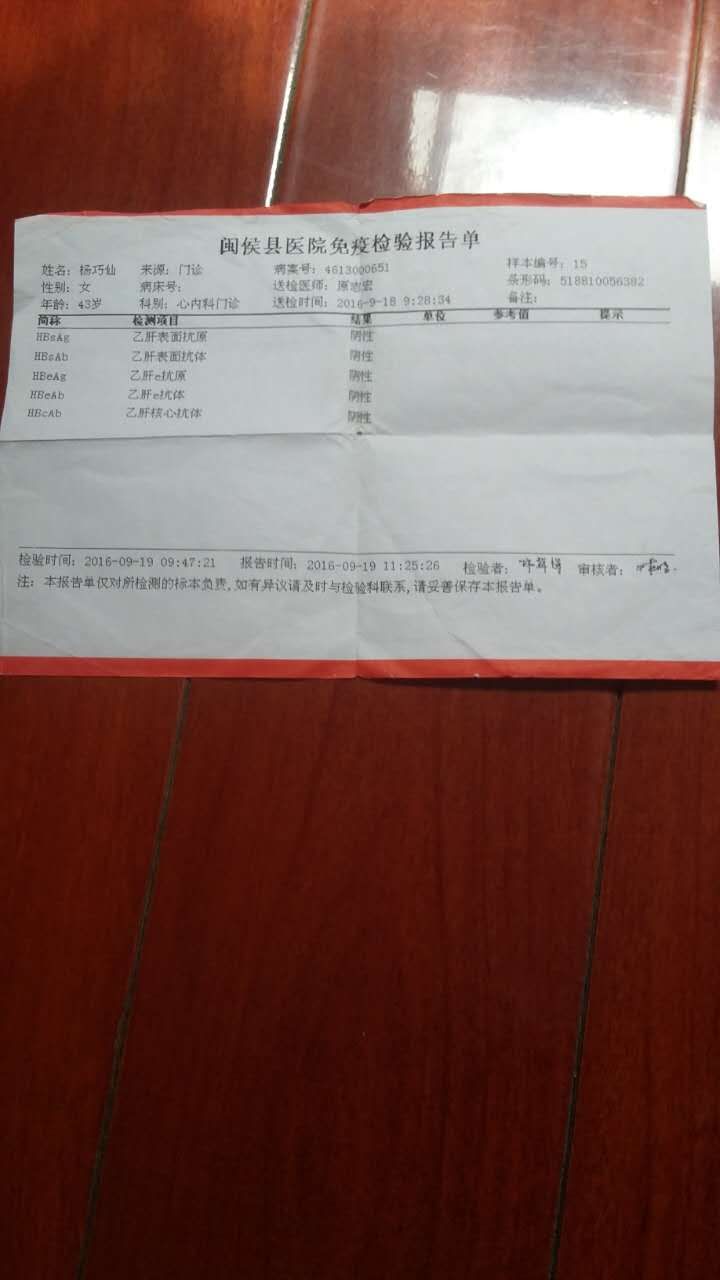 闽侯县医院免疫检验报告单
姓名: 杨巧仙 来源: 门诊 病案号: 4613000651 样本编号: 15
性别: 女 病床号: 送检医师: 原志宏 条形码: 518810056382
年龄: 43岁 科别: 心内科门诊 送检时间: 2016-9-18 9:28:34 备注:
简称 检测项目 结果 单位 参考值 提示
HBsAg 乙肝表面抗原 阴性
HBsAb 乙肝表面抗体 阴性
HBeAg 乙肝e抗原 阴性
HBeAb 乙肝e抗体 阴性
HBcAb 乙肝核心抗体 阴性
检验时间: 2016-09-19 09:47:21 报告时间: 2016-09-19 11:25:26 检验者: 审核者:
注: 本报告单仅对所检测的标本负责,如有异议请及时与检验科联系,请妥善保存本报告单。